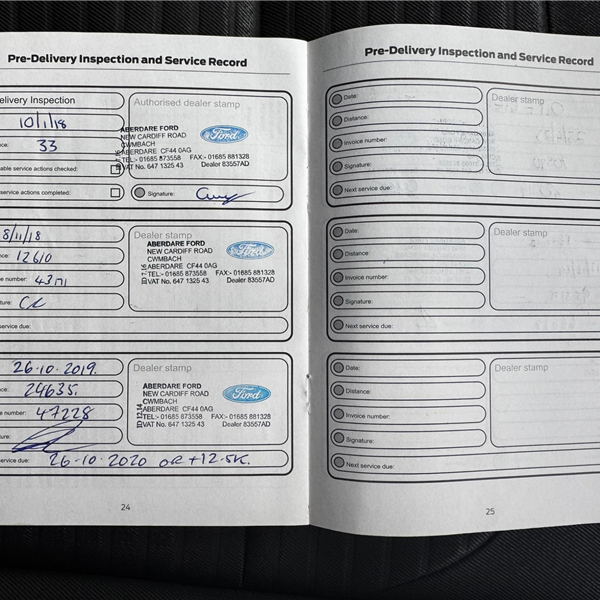 Pre-Delivery Inspection and Service Record
elivery Inspection
10/1/18
33
able service actions checked:
service actions completed:
Authorised dealer stamp
ABERDARE FORD
NEW CARDIFF ROAD
CWMBACH
ABERDARE CF44 0AG
TEL:- 01685 873558 FAX:- 01685 881328
VAT No. 647 1325 43 Dealer 83557AD
Ford
Signature:
8/11/18
12610
e number:
ure:
service due:
Dealer stamp
ABERDARE FORD
NEW CARDIFF ROAD
CWMBACH
ABERDARE CF44 0AG
TEL:- 01685 873558 FAX:- 01685 881328
VAT No. 647 1325 43 Dealer 83557AD
Ford
26-10-2019.
24635.
e number: 47228
ure:
Dealer stamp
ABERDARE FORD
NEW CARDIFF ROAD
CWMBACH
ABERDARE CF44 0AG
TEL:- 01685 873558 FAX:- 01685 881328
VAT No. 647 1325 43 Dealer 83557AD
Ford
service due: 26-10-2020 OR +12.5K.
24
Pre-Delivery Inspection and Service Record
Date:
Distance:
Invoice number:
Signature:
Next service due:
Dealer stamp
Date:
Distance:
Invoice number:
Signature:
Next service due:
Dealer stamp
Date:
Distance:
Invoice number:
Signature:
Next service due:
Dealer stamp
25